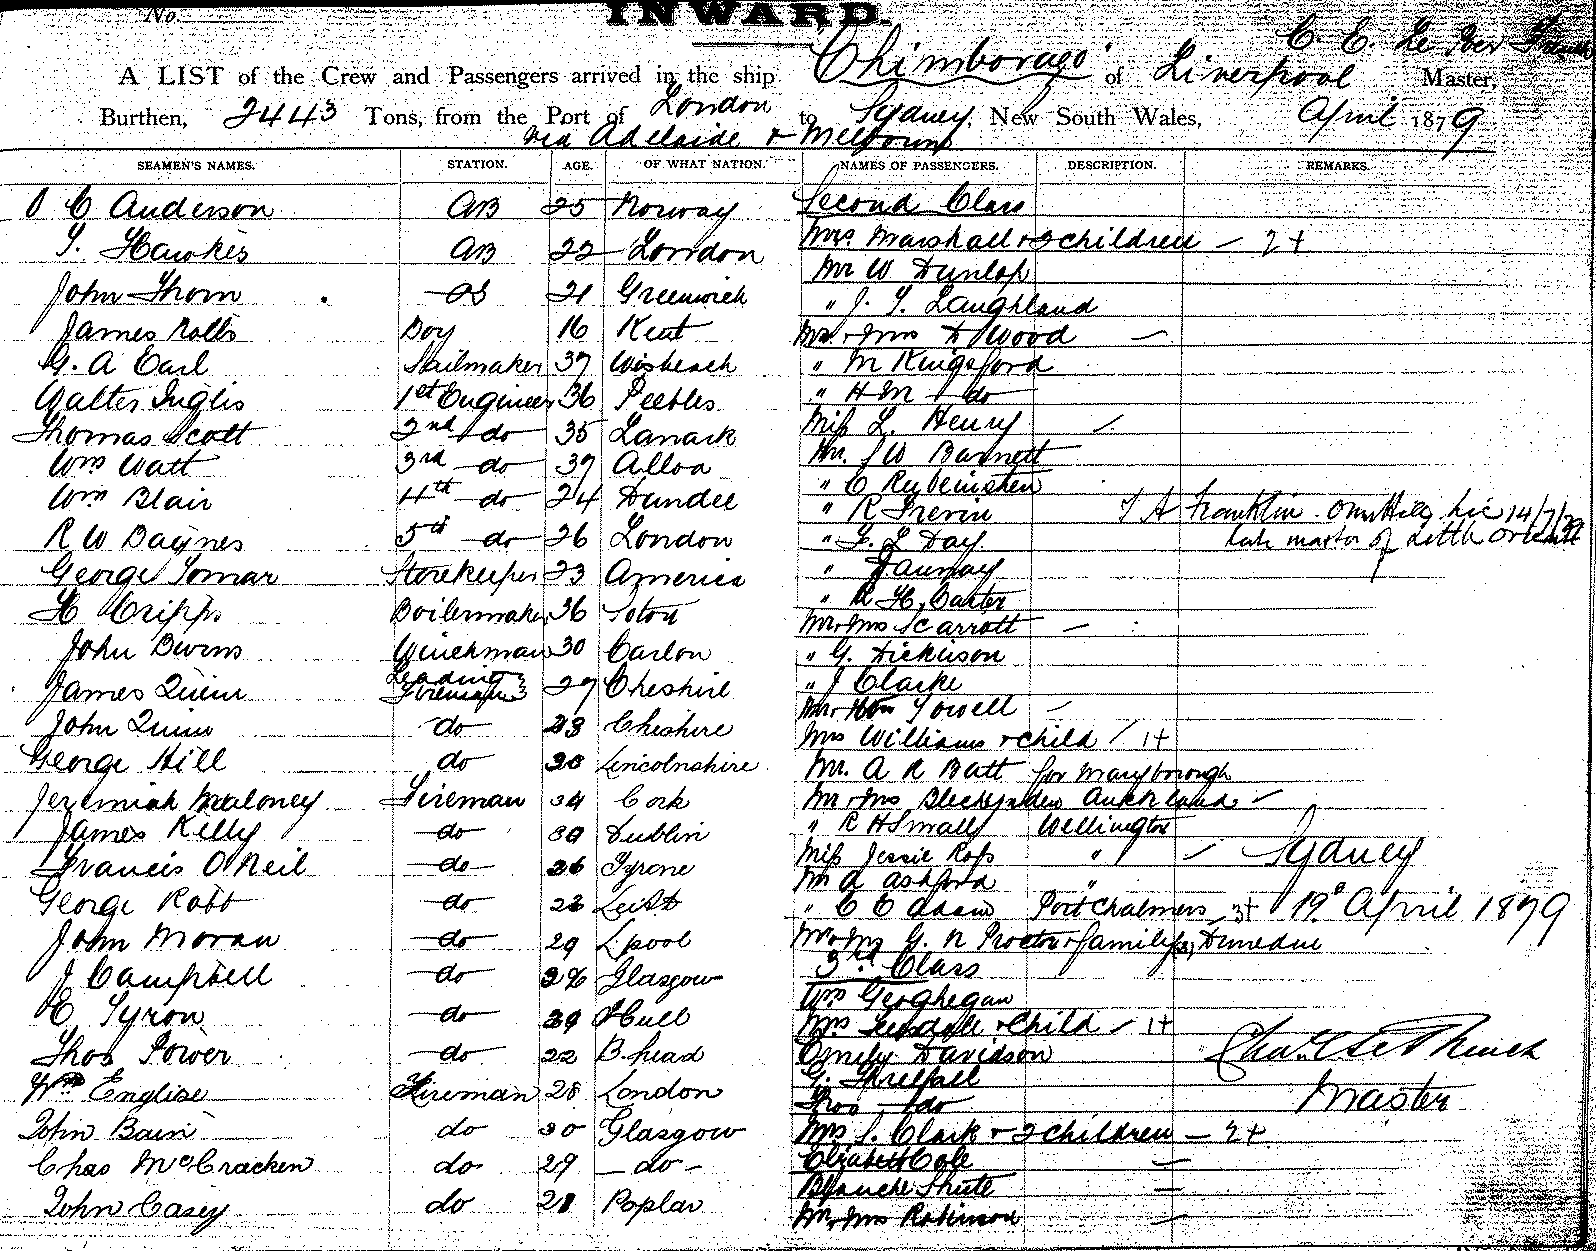 No
INWARD.
C. E.
A LIST of the Crew and Passengers arrived in the ship "Chimborazo" of Liverpool Master,
Burthen, 2443 Tons, from the Port of London to Sydney, New South Wales, April 1879
via Adelaide & Melbourne
SEAMEN'S NAMES. STATION. AGE. OF WHAT NATION. NAMES OF PASSENGERS. DESCRIPTION. REMARKS.
C Anderson AB 25 Norway Second Class
Hawkes AB 22 London Mrs Marshall & 2 children — 2+
Mr W Dunlop
John Thom OS 21 Greenwich " J. T. Laughland
James Rolls Boy 16 Kent Mr & Mrs D Wood —
G. A Earl Sailmaker 37 Wisbeach " M Kingsford
Walter Inglis 1st Engineer 36 Peebles " H M do
Thomas Scott 2nd do 35 Lanark Miss L. Henry
Wm Watt 3rd do 37 Alloa Mr. J W Barnett
" C Rubeinstein
Wm Blair 4th do 24 Dundee " R Trevin T A Franklin 14/7/39
R W Baynes 5th do 26 London " F. L Day. late master of Little Orient
George Tomar Storekeeper 23 America " Daunay
H Cripps Boilermaker 36 " R H. Carter
Mr & Mrs Scarrott —
John Bivins Winchman 30 Carlow " G. Dickinson
James Quinn Leading Fireman 27 Cheshire " J Clarke
Mr & Mrs Powell —
John Quinn do 23 Cheshire Mrs Williams & child / 1+
George Hill do 30 Lincolnshire Mr. A R Batt for Maryborough
Jeremiah Maloney Fireman 34 Cork Mr & Mrs Auckland
James Kelly do 39 Dublin " R H Small Wellington
Francis O'Neil do 26 Tyrone Miss Jessie Ross " Sydney
Mr A Ashford "
George Robb do 23 Leith " C C Adam Port Chalmers 3+ 19th April 1879
John Moran do 29 L'pool Mr & Mrs G. N Proctor & family (3) Dunedin
J Campbell do 26 Glasgow 3rd Class
Wm Geoghegan
E Tyron do 29 Hull Mrs & Child / 1+
Thos Power do 22 B.head Emily Davidson
G. Threlfall
Wm Englise Fireman 28 London Thos do Master
John Bain do 30 Glasgow Mrs S. Clark & 2 children — 2+
Chas McCracken do 29 do Elizabeth Cole —
Blanche Shute —
John Casey do 21 Poplar Mr & Mrs Robinson —